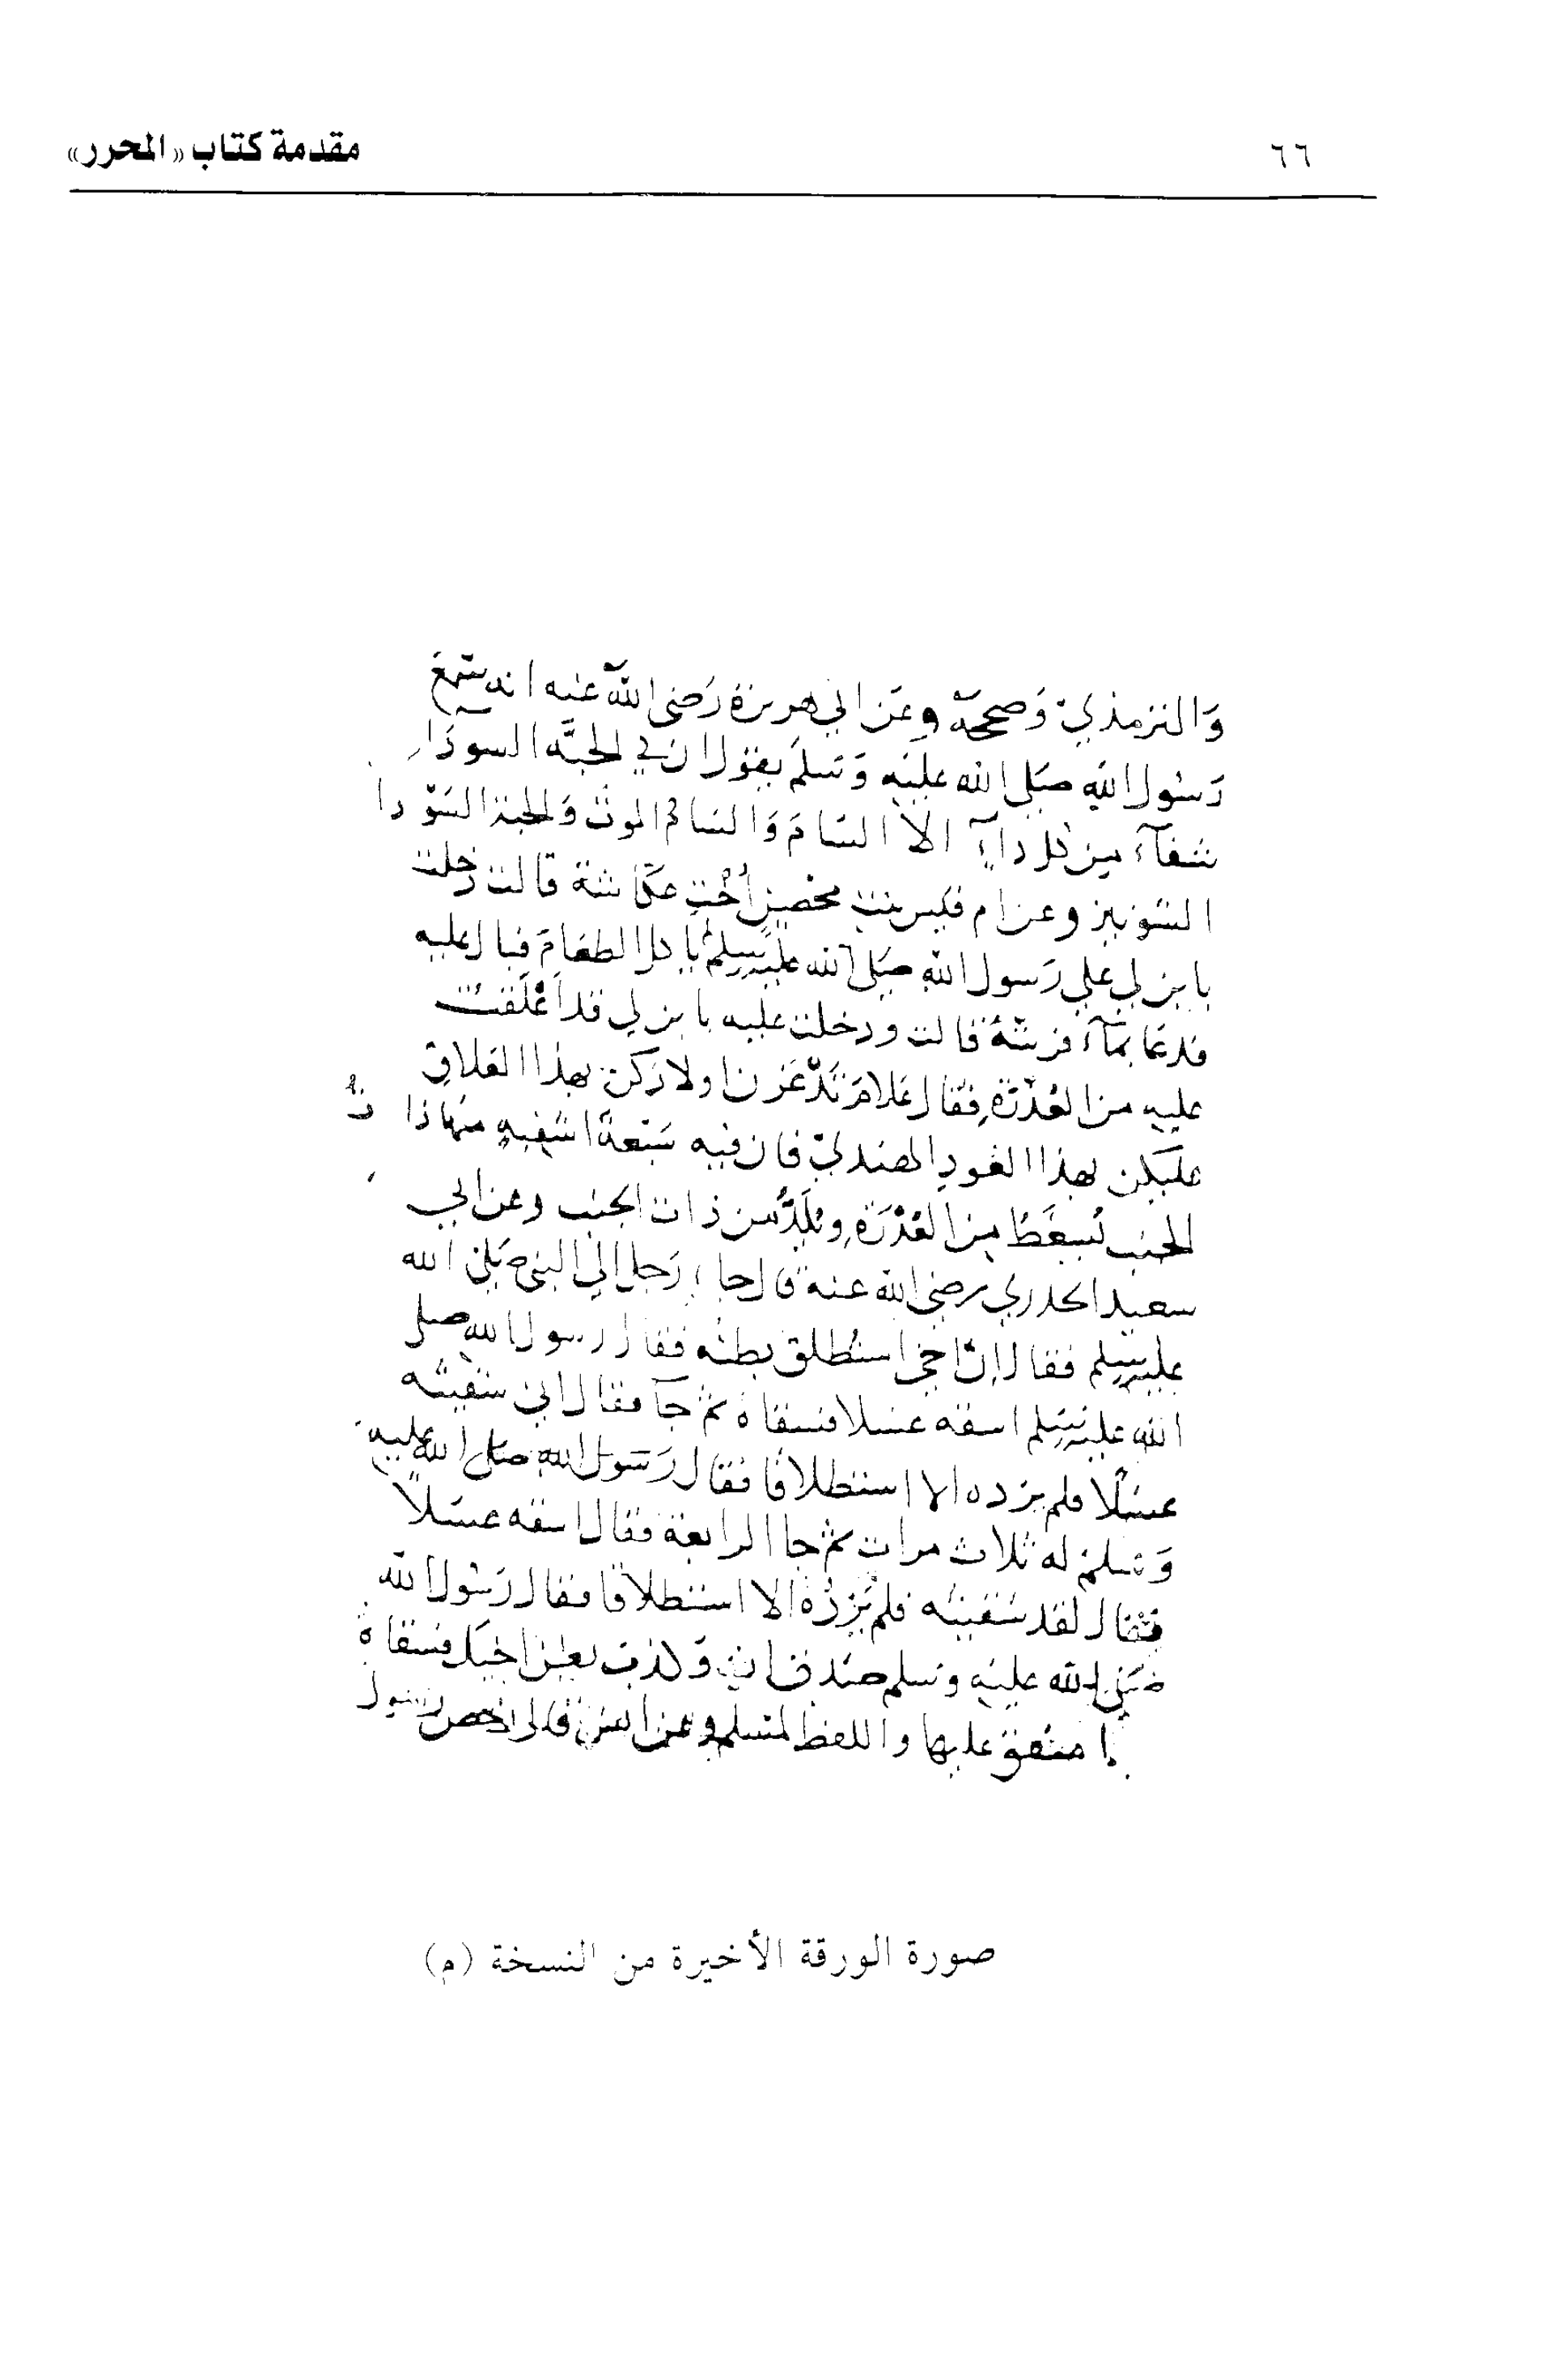 ٦٦
مقدمة كتاب «المحرر»
وَالترمذيّ وَصححهّ وعَن ابي هريرة رَضي اللّه عنه انه سَمعَ
رَسُول اللّه صَلى الله عليْه وَسَلمَ يقول ان في الحبَّه السودَاء
شفآءً من كل داءٍ الا السَّامَ وَالسَام الموت وَالحبة السَّوْدا
الشونيز وعن ام قيس بنت محْصَنٍ اُخْتِ عكّاشة قالت دخلت
بابن لي علي رَسول اللّه صَلى الله عليه وسلم لم ياكل الطعَامَ فبال عليه
فدعَا بمآء فرشّهُ قالت ودخلت عليه بابن لي قد اَعْلَقتُ
عليه من العُذْرَةِ فقال عَلامَ تَدْغَرْن اولادكن بهذا العَلاقِ
عليكن بهذا العُودِ الهنديّ فان فيه سَبْعةَ اشفيهٍ منها ذات
الجنب يُسعَطُ من العُذْرَةِ ويُلَدُّ من ذات الجنب وعن ابي
سعيد الخدري رضي الله عنه قال جاء رَجل الي النبي صَلى الله
عليه وسلم فقال اِنّ اخي استُطلق بطنُه فقال رسول الله صلى
الله عليه وسَلم اسقه عسَلا فسقاه ثم جآ فقال اني سَقيتُه
عسَلًا فلم يزده الا استطلاقًا فقال رَسَول الله صلى الله عليه
وَسَلمَ له ثلاث مرات ثم جا الرابعة فقال اسقه عسَلاً
فقال لقد سَقيتُه فلم يَزِدْهُ الا استطلاقا فقال رَسُول الله
صَلى الله عليْه وسلم صَدق الله وَكذب بطن اخيك فسقاهُ
متفق عليها واللفظ لمسلم وعن انس قال رخص رسول
صورة الورقة الأخيرة من النسخة (م)